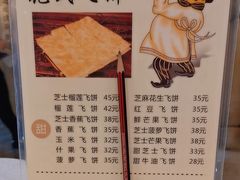 芝士榴莲飞饼 45元
榴莲飞饼 42元
芝士香蕉飞饼 38元
香蕉飞饼 35元
玉米飞饼 32元
什果飞饼 32元
菠萝飞饼 35元
甜
芝麻花生飞饼 35元
红豆飞饼 35元
鲜芒果飞饼 35元
芝士菠萝飞饼 38元
芝士芒果飞饼 38元
甜芝士飞饼 33元
甜牛油飞饼 28元